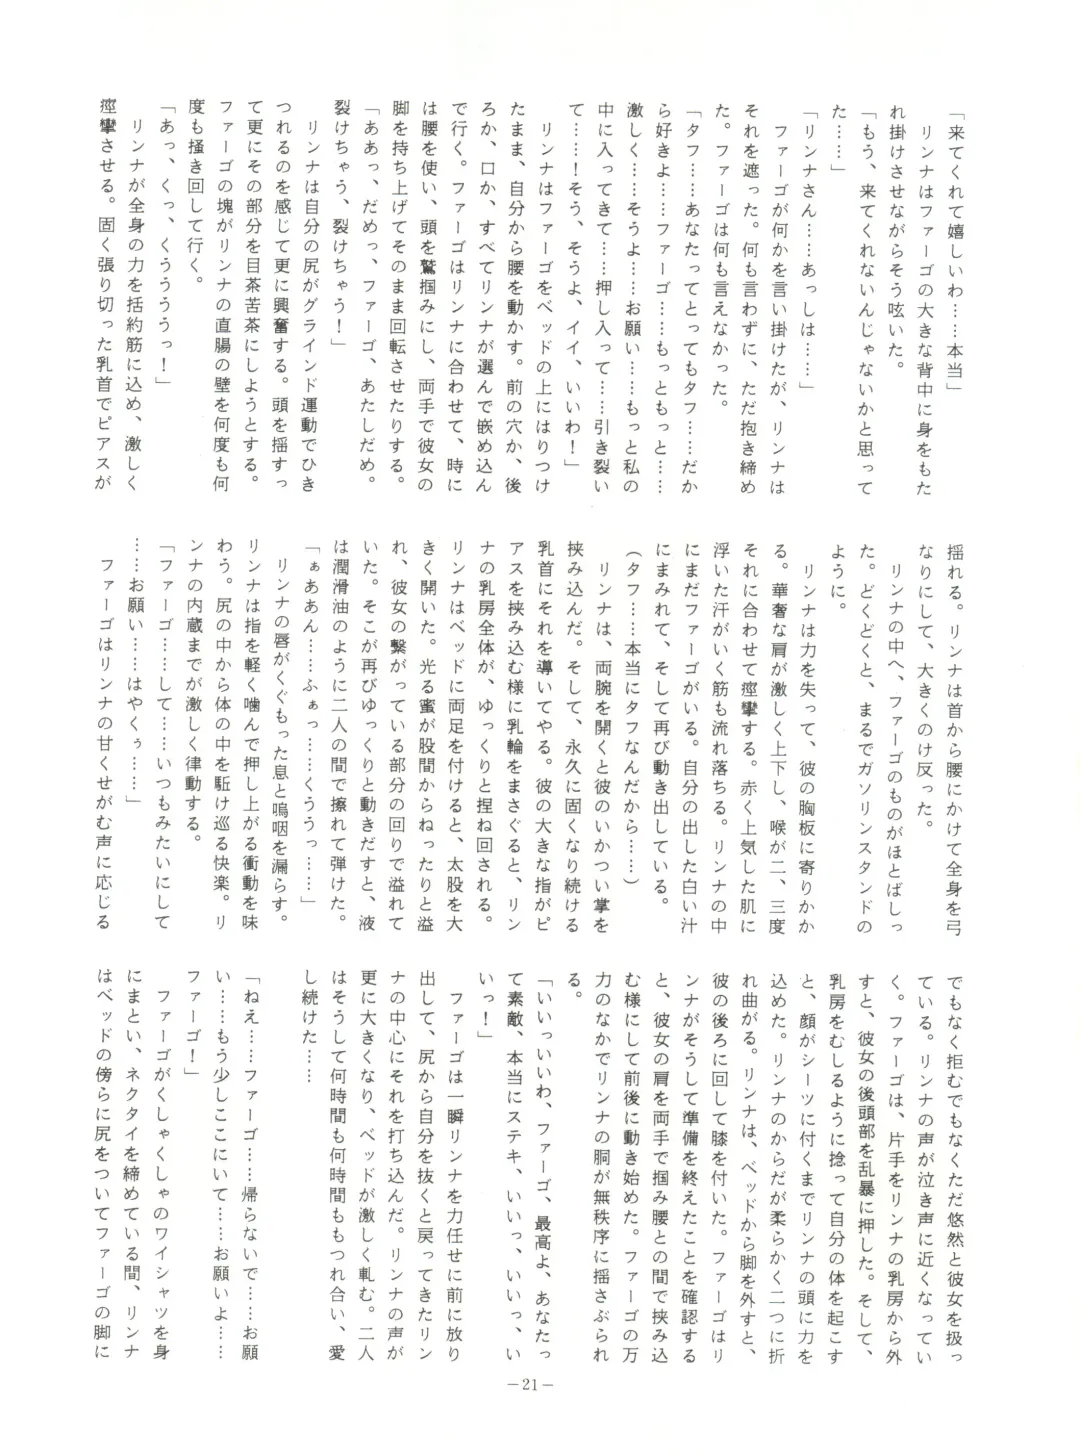 「来てくれて嬉しいわ……本当」
　リンナはファーゴの大きな背中に身をもた
れ掛けさせながらそう呟いた。
「もう、来てくれないんじゃないかと思って
た……」
「リンナさん……あっしは……」
　ファーゴが何かを言い掛けたが、リンナは
それを遮った。何も言わずに、ただ抱き締め
た。ファーゴは何も言えなかった。
「タフ……あなたってとってもタフ……だか
ら好きよ……ファーゴ……もっともっと……
激しく……そうよ……お願い……もっと私の
中に入ってきて……押し入って……引き裂い
て……！そう、そうよ、イイ、いいわ！」
　リンナはファーゴをベッドの上にはりつけ
たまま、自分から腰を動かす。前の穴か、後
ろか、口か、すべてリンナが選んで嵌め込ん
で行く。ファーゴはリンナに合わせて、時に
は腰を使い、頭を鷲掴みにし、両手で彼女の
脚を持ち上げてそのまま回転させたりする。
「ああっ、だめっ、ファーゴ、あたしだめ。
裂けちゃう、裂けちゃう！」
　リンナは自分の尻がグラインド運動でひき
つれるのを感じて更に興奮する。頭を揺すっ
て更にその部分を目茶苦茶にしようとする。
ファーゴの塊がリンナの直腸の壁を何度も何
度も掻き回して行く。
「あっ、くっ、くううううっ！」
　リンナが全身の力を括約筋に込め、激しく
痙攣させる。固く張り切った乳首でピアスが
揺れる。リンナは首から腰にかけて全身を弓
なりにして、大きくのけ反った。
　リンナの中へ、ファーゴのものがほとばしっ
た。どくどくと、まるでガソリンスタンドの
ように。
　リンナは力を失って、彼の胸板に寄りかか
る。華奢な肩が激しく上下し、喉が二、三度
それに合わせて痙攣する。赤く上気した肌に
浮いた汗がいく筋も流れ落ちる。リンナの中
にまだファーゴがいる。自分の出した白い汁
にまみれて、そして再び動き出している。
（タフ……本当にタフなんだから……）
　リンナは、両腕を開くと彼のいかつい掌を
挟み込んだ。そして、永久に固くなり続ける
乳首にそれを導いてやる。彼の大きな指がピ
アスを挟み込む様に乳輪をまさぐると、リン
ナの乳房全体が、ゆっくりと捏ね回される。
リンナはベッドに両足を付けると、太股を大
きく開いた。光る蜜が股間からねったりと溢
れ、彼女の繋がっている部分の回りで溢れて
いた。そこが再びゆっくりと動きだすと、液
は潤滑油のように二人の間で擦れて弾けた。
「ぁああん……ふぁっ……くううっ……」
　リンナの唇がくぐもった息と嗚咽を漏らす。
リンナは指を軽く噛んで押し上がる衝動を味
わう。尻の中から体の中を駈け巡る快楽。リ
ンナの内蔵までが激しく律動する。
「ファーゴ……して……いつもみたいにして
……お願い……はやくぅ……」
　ファーゴはリンナの甘くせがむ声に応じる
でもなく拒むでもなくただ悠然と彼女を扱っ
ている。リンナの声が泣き声に近くなってい
く。ファーゴは、片手をリンナの乳房から外
すと、彼女の後頭部を乱暴に押した。そして、
乳房をむしるように捻って自分の体を起こす
と、顔がシーツに付くまでリンナの頭に力を
込めた。リンナのからだが柔らかく二つに折
れ曲がる。リンナは、ベッドから脚を外すと、
彼の後ろに回して膝を付いた。ファーゴはリ
ンナがそうして準備を終えたことを確認する
と、彼女の肩を両手で掴み腰との間で挟み込
む様にして前後に動き始めた。ファーゴの万
力のなかでリンナの胴が無秩序に揺さぶられ
る。
「いいっいいわ、ファーゴ、最高よ、あなたっ
て素敵、本当にステキ、いいっ、いいっ、い
いっ！」
　ファーゴは一瞬リンナを力任せに前に放り
出して、尻から自分を抜くと戻ってきたリン
ナの中心にそれを打ち込んだ。リンナの声が
更に大きくなり、ベッドが激しく軋む。二人
はそうして何時間も何時間ももつれ合い、愛
し続けた……
「ねえ……ファーゴ……帰らないで……お願
い……もう少しここにいて……お願いよ……
ファーゴ！」
　ファーゴがくしゃくしゃのワイシャツを身
にまとい、ネクタイを締めている間、リンナ
はベッドの傍らに尻をついてファーゴの脚に
―21―